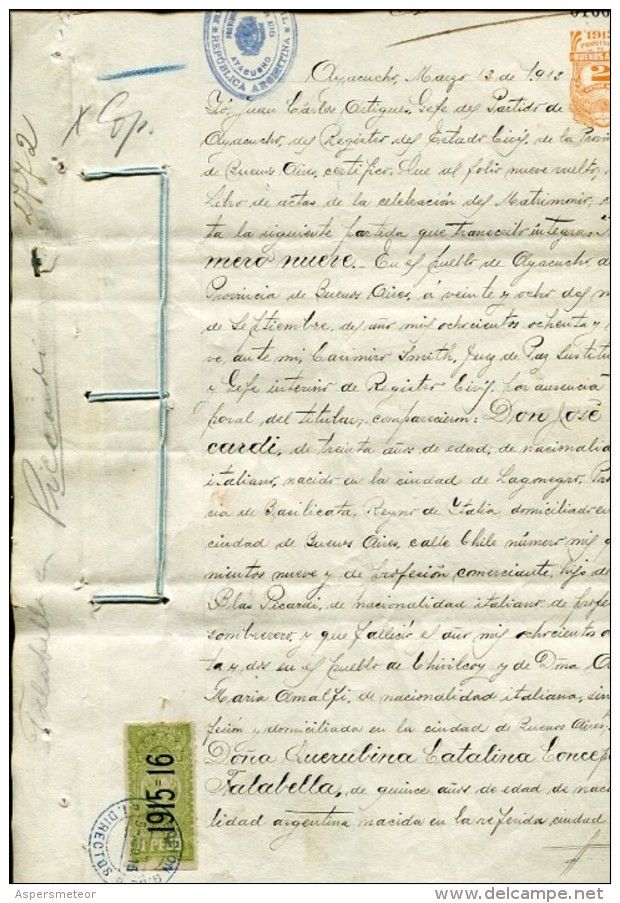 REPÚBLICA ARGENTINA
AYACUCHO
1913
PROVINCIA
BUENOS A
2
Ayacucho, Marzo 13 de 1913
Yó, Juan Carlos Artigue, Gefe del Partido de
Ayacucho, del Registro del Estado Civil, de la Provi
de Buenos Aires, certifico: Que al folio nueve vuelto,
Libro de actas de la celebración del Matrimonio,
ta la siguiente partida que transcribo íntegra:
mero nueve. En el pueblo de Ayacucho,
Provincia de Buenos Aires, á veinte y ocho del m
de Septiembre, del año mil ochocientos ochenta y
ve, ante mi, Casimiro Smith, Juez de Paz Sustitu
y Gefe interino de Registro Civil, por ausencia
poral del titular, comparecieron: Don José
cardi, de treinta años de edad, de nacionalid
italiano, nacido en la ciudad de Lagonegro, Pro
cia de Basilicata, Reyno de Italia domiciliado en
ciudad de Buenos Aires, calle Chile número mil q
nientos nueve y de profesión comerciante, hijo de
Blas Picardi, de nacionalidad italiano de profe
sombrerero, y que falleció el año mil ochocientos o
ta y dos en el pueblo de Chivilcoy y de Doña
Maria Amalfi, de nacionalidad italiana, sin
fesión y domiciliada en la ciudad de Buenos Aires.
Doña Querubina Catalina Concep
Talabella, de quince años de edad de nac
lidad argentina nacida en la referida ciudad
X Cop.
2772
Talabella Piccardi
1915-16
1 PESO
DIRECTO
Aspersmeteor
www.delcampe.net